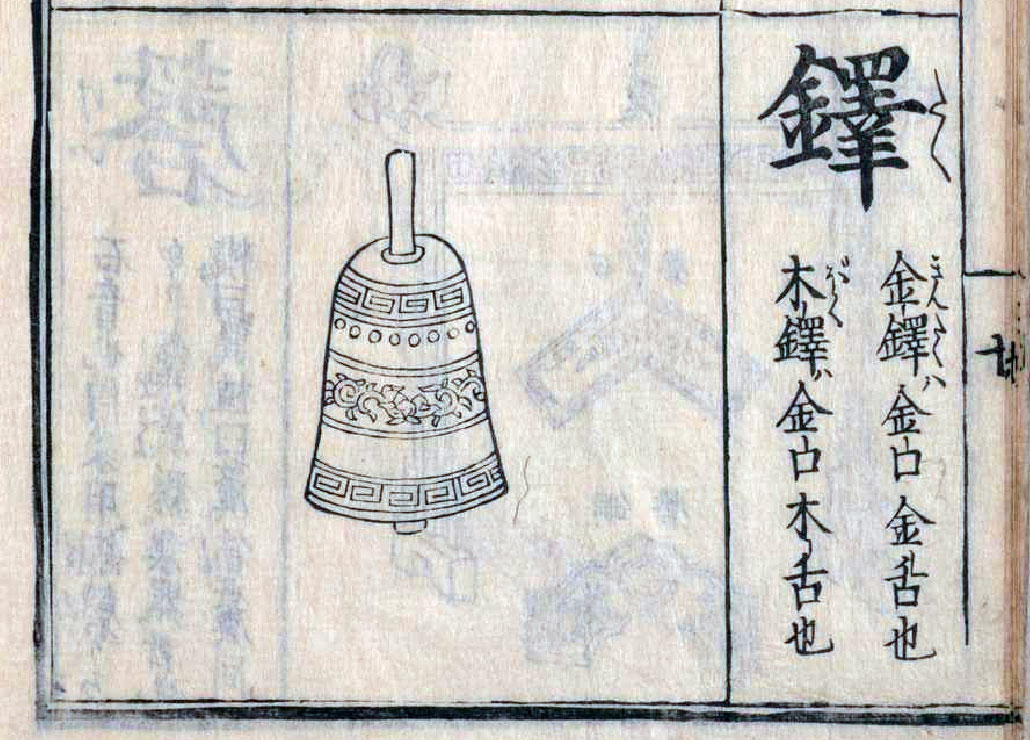 鐸
たく
金鐸ハ金口金舌也
きんたく
木鐸ハ金口木舌也
ぼく